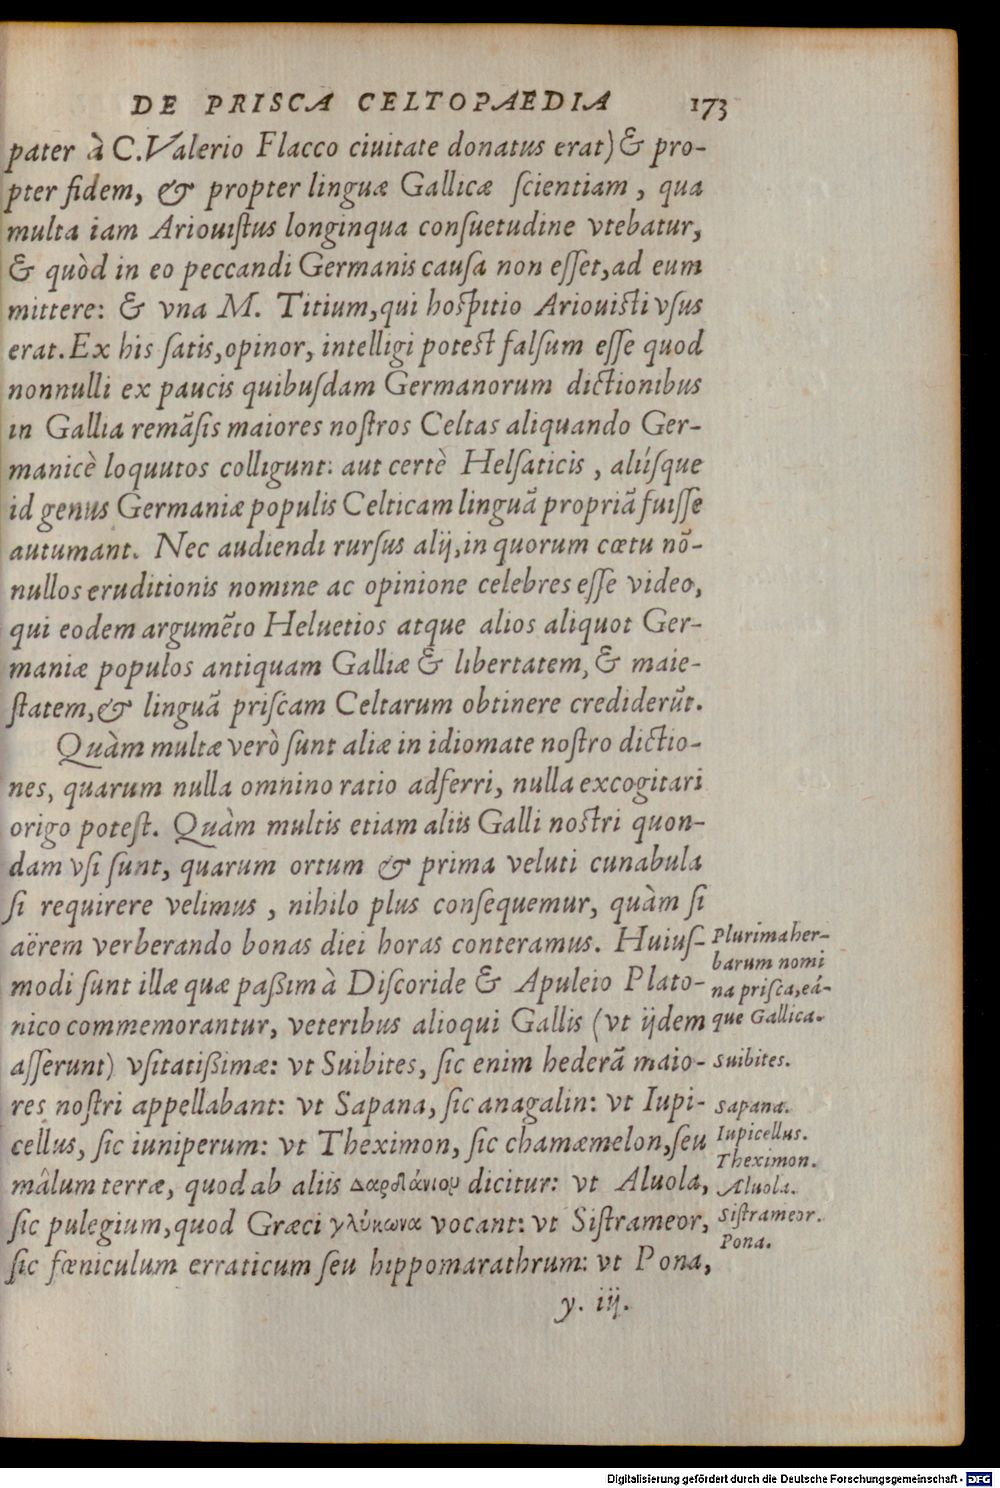 DE PRISCA CELTOPAEDIA 173
pater à C. Valerio Flacco ciuitate donatus erat) & pro-
pter fidem, & propter linguæ Gallicæ ſcientiam, qua
multa iam Ariouiſtus longinqua conſuetudine vtebatur,
& quòd in eo peccandi Germanis cauſa non eſſet, ad eum
mittere: & vna M. Titium, qui hoſpitio Ariouiſti vſus
erat. Ex his ſatis, opinor, intelligi poteſt falſum eſſe quod
nonnulli ex paucis quibuſdam Germanorum dictionibus
in Gallia remãſis maiores noſtros Celtas aliquando Ger-
manicè loquutos colligunt: aut certè Helſaticis, aliíſque
id genus Germaniæ populis Celticam linguã propriã fuiſſe
autumant. Nec audiendi rurſus alij, in quorum cœtu nõ-
nullos eruditionis nomine ac opinione celebres eſſe video,
qui eodem argumẽto Heluetios atque alios aliquot Ger-
maniæ populos antiquam Galliæ & libertatem, & maie-
ſtatem, & linguã priſcam Celtarum obtinere crediderũt.
Quàm multæ verò ſunt aliæ in idiomate noſtro dictio-
nes, quarum nulla omnino ratio adferri, nulla excogitari
origo poteſt. Quàm multis etiam aliis Galli noſtri quon-
dam vſi ſunt, quarum ortum & prima veluti cunabula
ſi requirere velimus, nihilo plus conſequemur, quàm ſi
aërem verberando bonas diei horas conteramus. Huiuſ-
modi ſunt illæ quæ paßim à Diſcoride & Apuleio Plato-
nico commemorantur, veteribus alioqui Gallis (vt ijdem
aſſerunt) vſitatißimæ: vt Suibites, ſic enim hederã maio-
res noſtri appellabant: vt Sapana, ſic anagalin: vt Iupi-
cellus, ſic iuniperum: vt Theximon, ſic chamæmelon, ſeu
mâlum terræ, quod ab aliis δαρδάνιον dicitur: vt Aluola,
ſic pulegium, quod Græci γλύκωνα vocant: vt Siſtrameor,
ſic fœniculum erraticum ſeu hippomarathrum: vt Pona,
y. iij.
Plurima her-
barum nomi
na priſca, eá-
que Gallica.
Suibites.
Sapana.
Iupicellus.
Theximon.
Aluola.
Siſtrameor.
Pona.
Digitalisierung gefördert durch die Deutsche Forschungsgemeinschaft - DFG